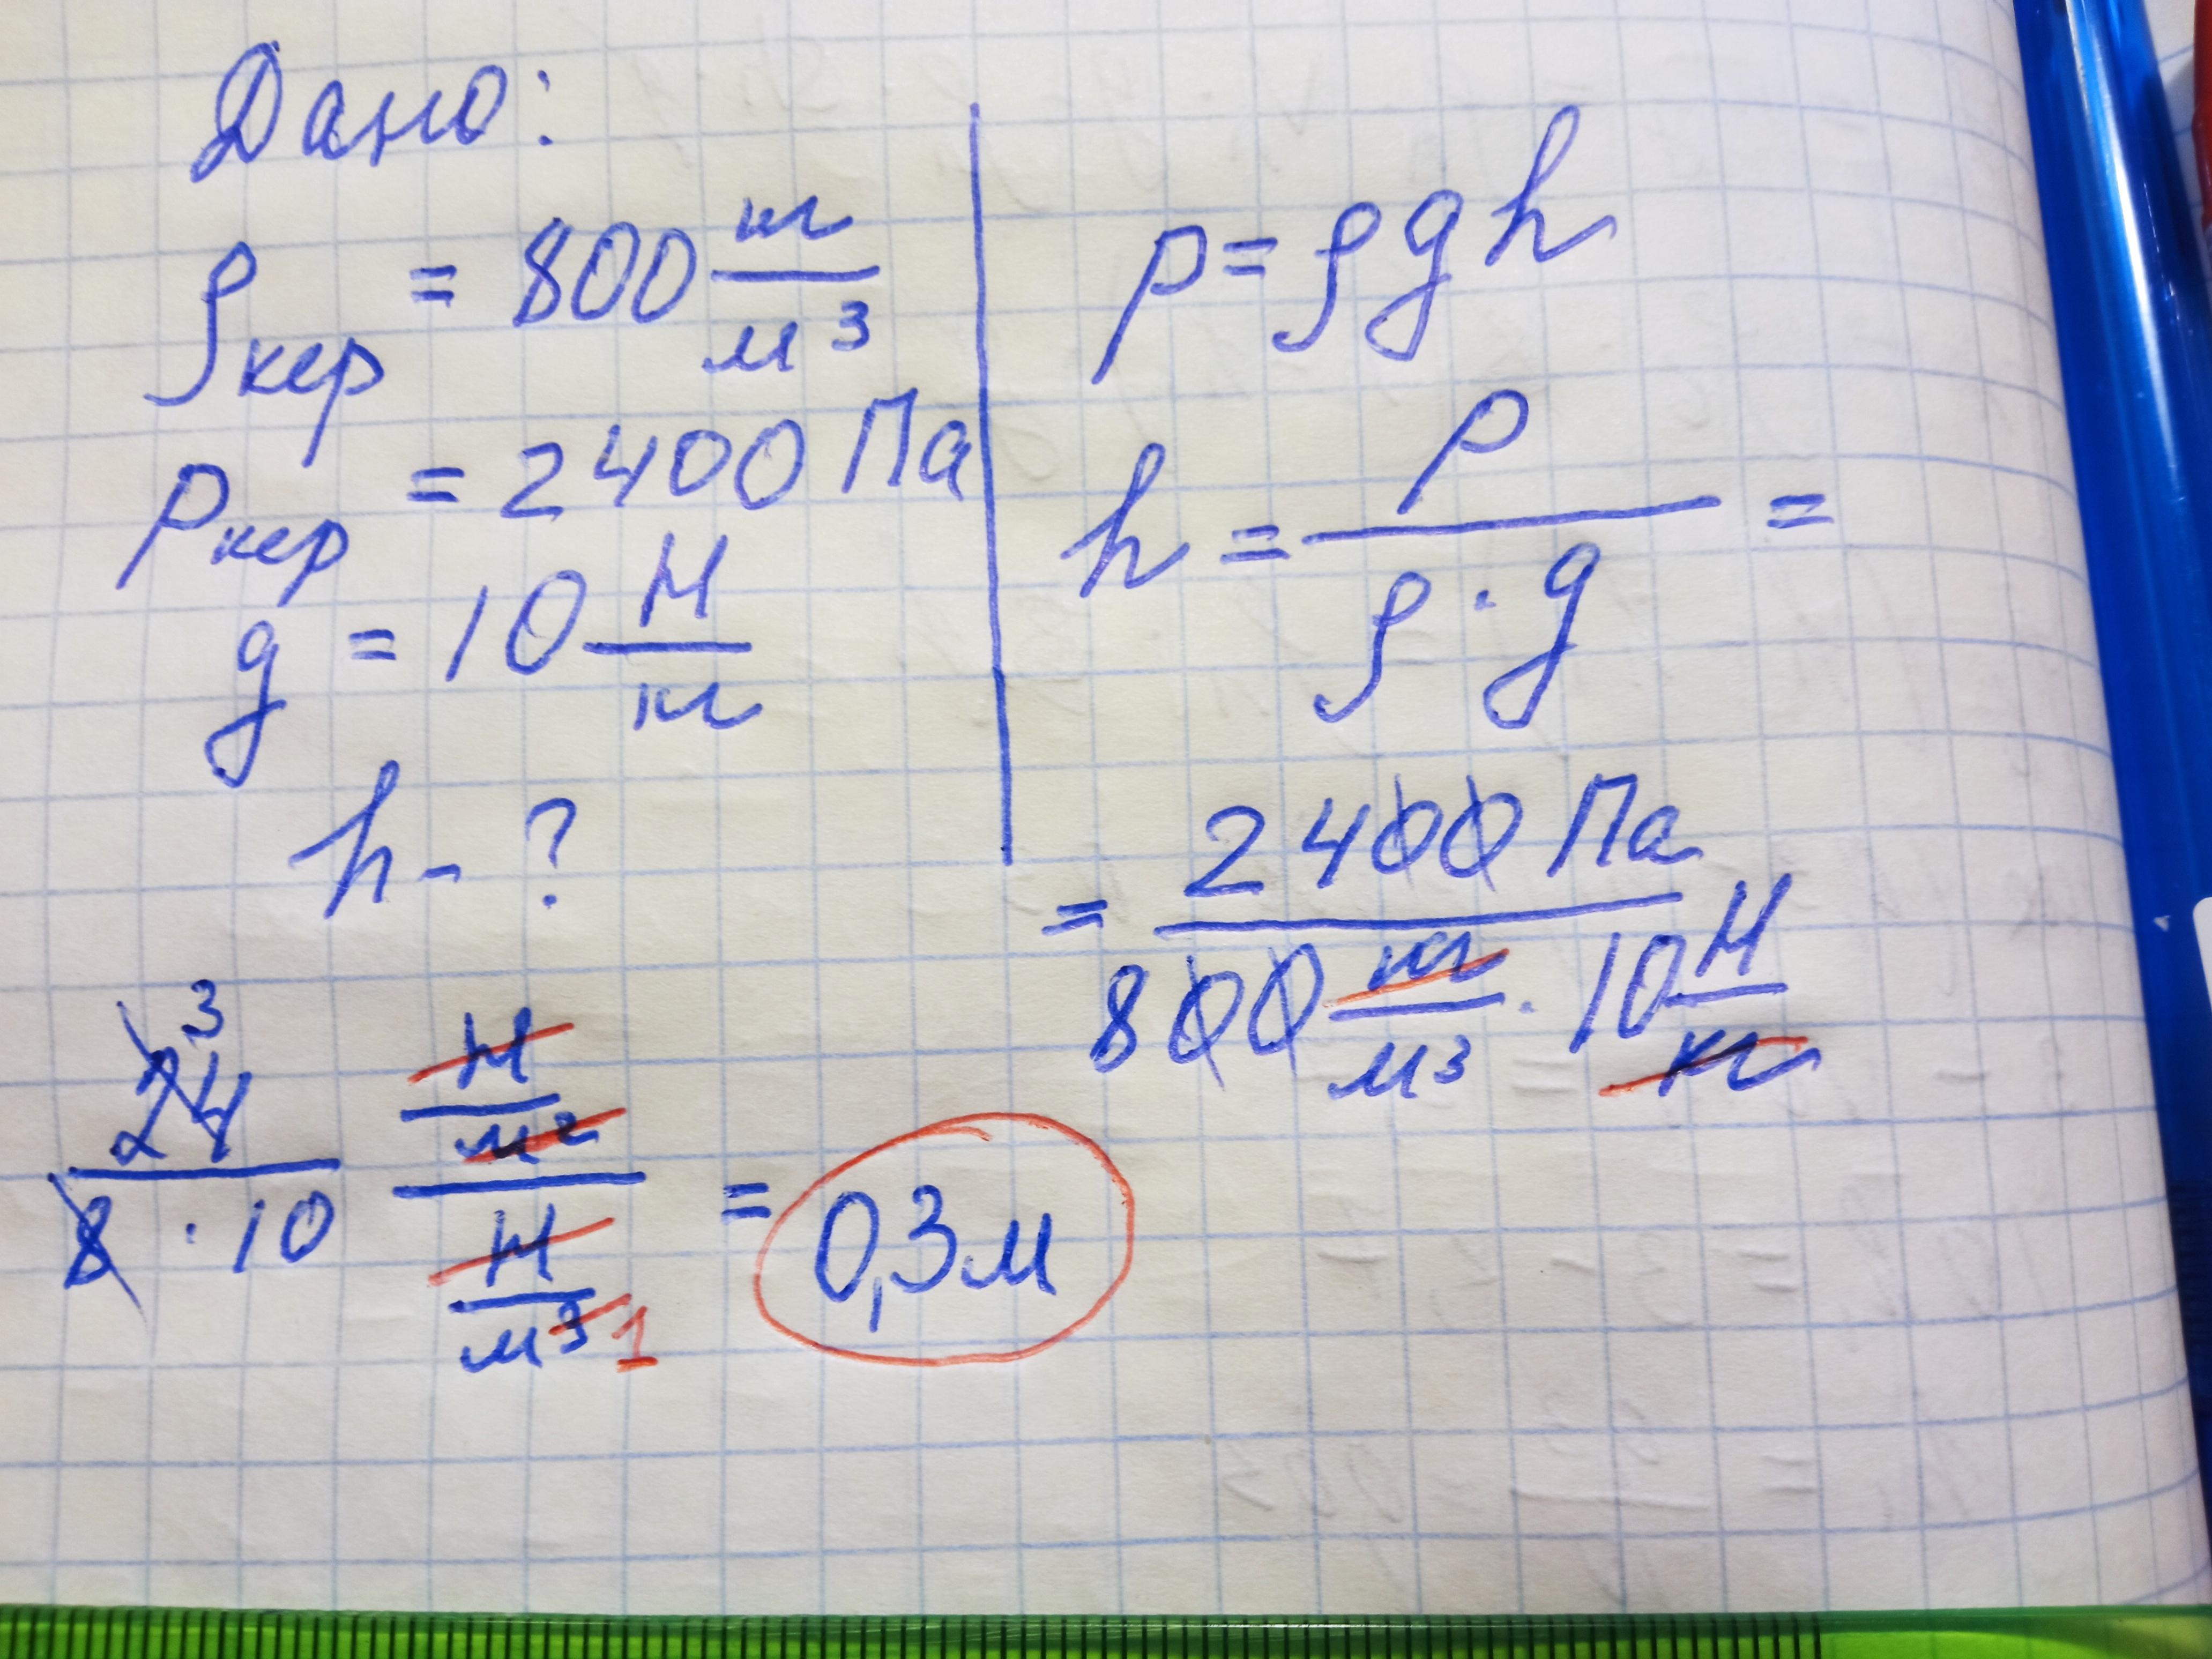 Дано:
ρкер = 800 кг/м³
pкер = 2400 Па
g = 10 Н/кг
h - ?
p = ρgh
h = p / ρ · g =
= 2400 Па / 800 кг/м³ · 10 Н/кг
3
24 / 8 · 10 Н/м² / Н/м³ 1 = 0,3м